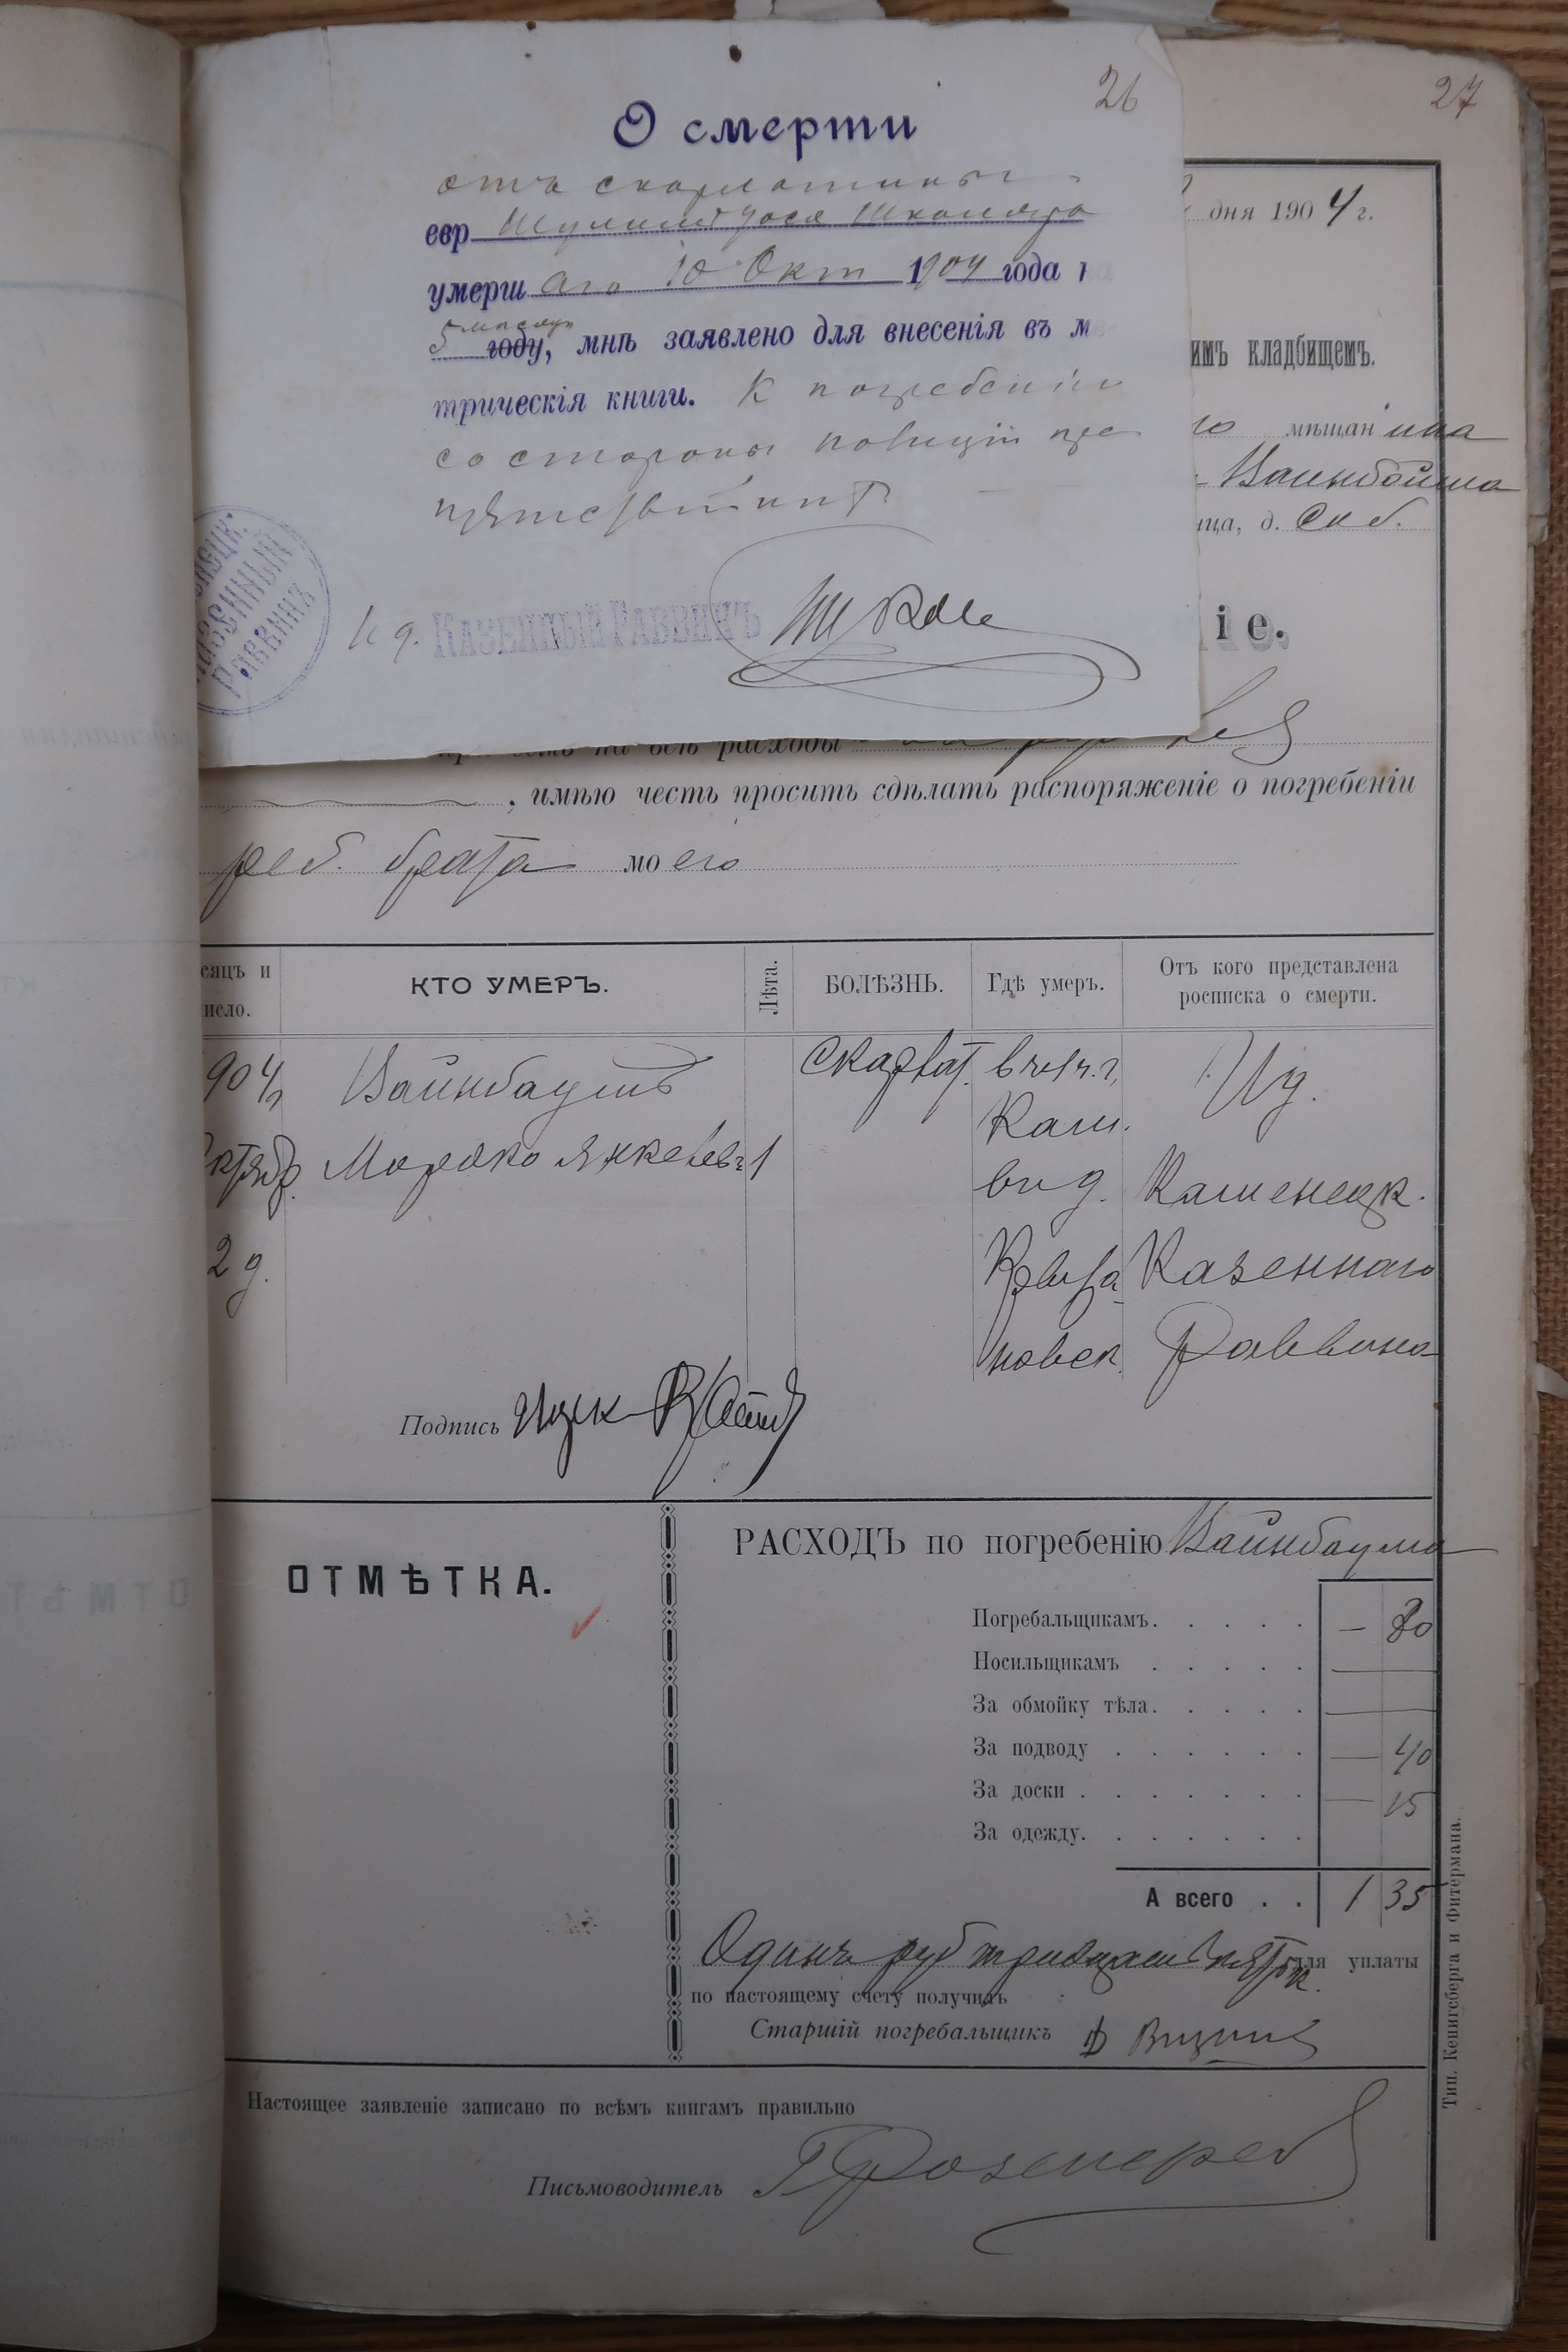 26
27
О смерти
отъ скарлатины
евр Шулимъ Йося Школяра
умерш аго 10 Окт 1904 года на
5 мѣсяцъ году, мнѣ заявлено для внесенія въ ме-
трическія книги. К погребенію
со стороны полиціи пре
пятствій нѣтъ
КАЗЕННЫЙ РАВВИНЪ
И д. КАЗЕННЫЙ РАВВИНЪ
дня 1904 г.
имъ кладбищемъ.
го мѣщанина
Вайнбойма
ица, д. Скб.
іе.
на всѣ расходы
, имѣю честь просить сдѣлать распоряженіе о погребеніи
реб. брата моего
сяцъ и
исло.
КТО УМЕРЪ.
Лѣта.
БОЛѢЗНЬ.
Гдѣ умеръ.
Отъ кого представлена
росписка о смерти.
904
Вайнбаумъ
Скарлат.
в чет. г.
И д.
Кам.
ктябр.
Мордко Янкелев.
1
в и д.
Каменецк.
2 д.
Казеннаго
новск.
Раввина
Подпись Ицик
ОТМѢТКА.
РАСХОДЪ по погребенію Вайнбаума
Погребальщикамъ. . . . . — 80
Носильщикамъ . . . . . —
За обмойку тѣла. . . . . —
За подводу . . . . . . — 40
За доски . . . . . . . — 15
За одежду. . . . . . .
А всего . . 1 35
Одинъ руб тридцать пять к. для уплаты
по настоящему счету получилъ
Старшій погребальщикъ
Настоящее заявленіе записано по всѣмъ книгамъ правильно
Письмоводитель
Тип. Кенигсберга и Фитермана.